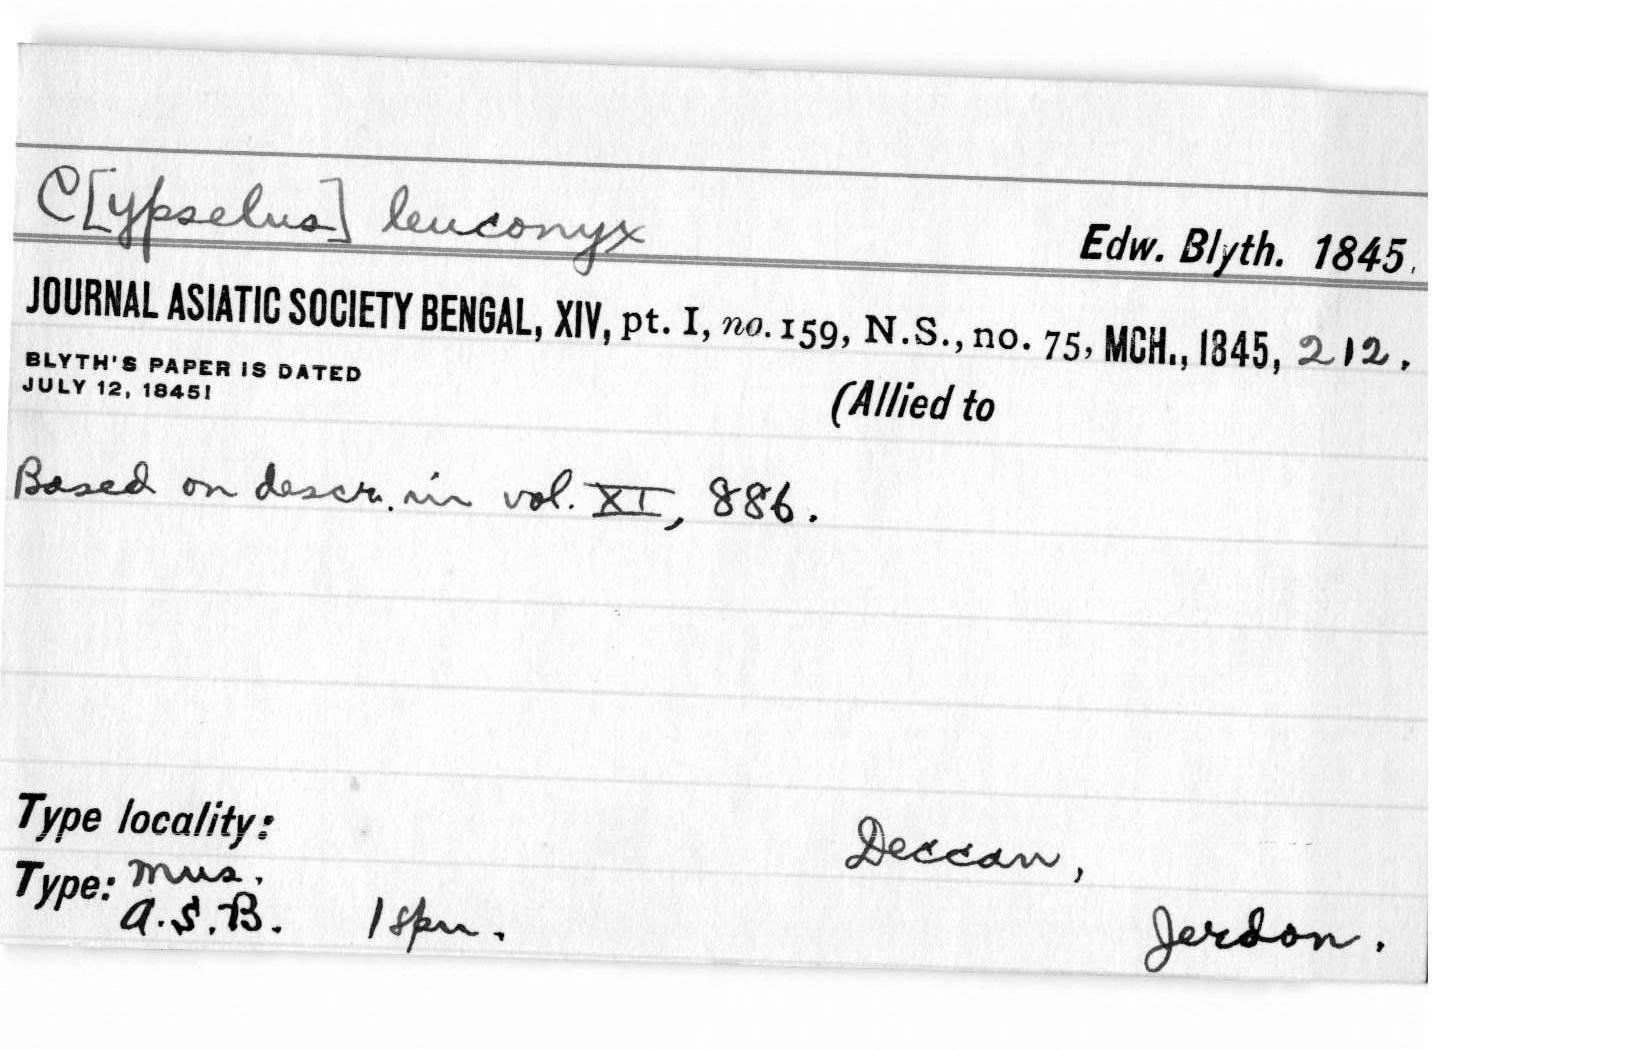 C[ypselus] leuconyx
Edw. Blyth. 1845.
JOURNAL ASIATIC SOCIETY BENGAL, XIV, pt. I, no. 159, N.S., no. 75, MCH., 1845, 212.
BLYTH'S PAPER IS DATED
JULY 12, 1845!
(Allied to
Based on descr. in vol. XI, 886.
Type locality: Deccan,
Type: Mus.
A.S.B. 1 spn. Jerdon.